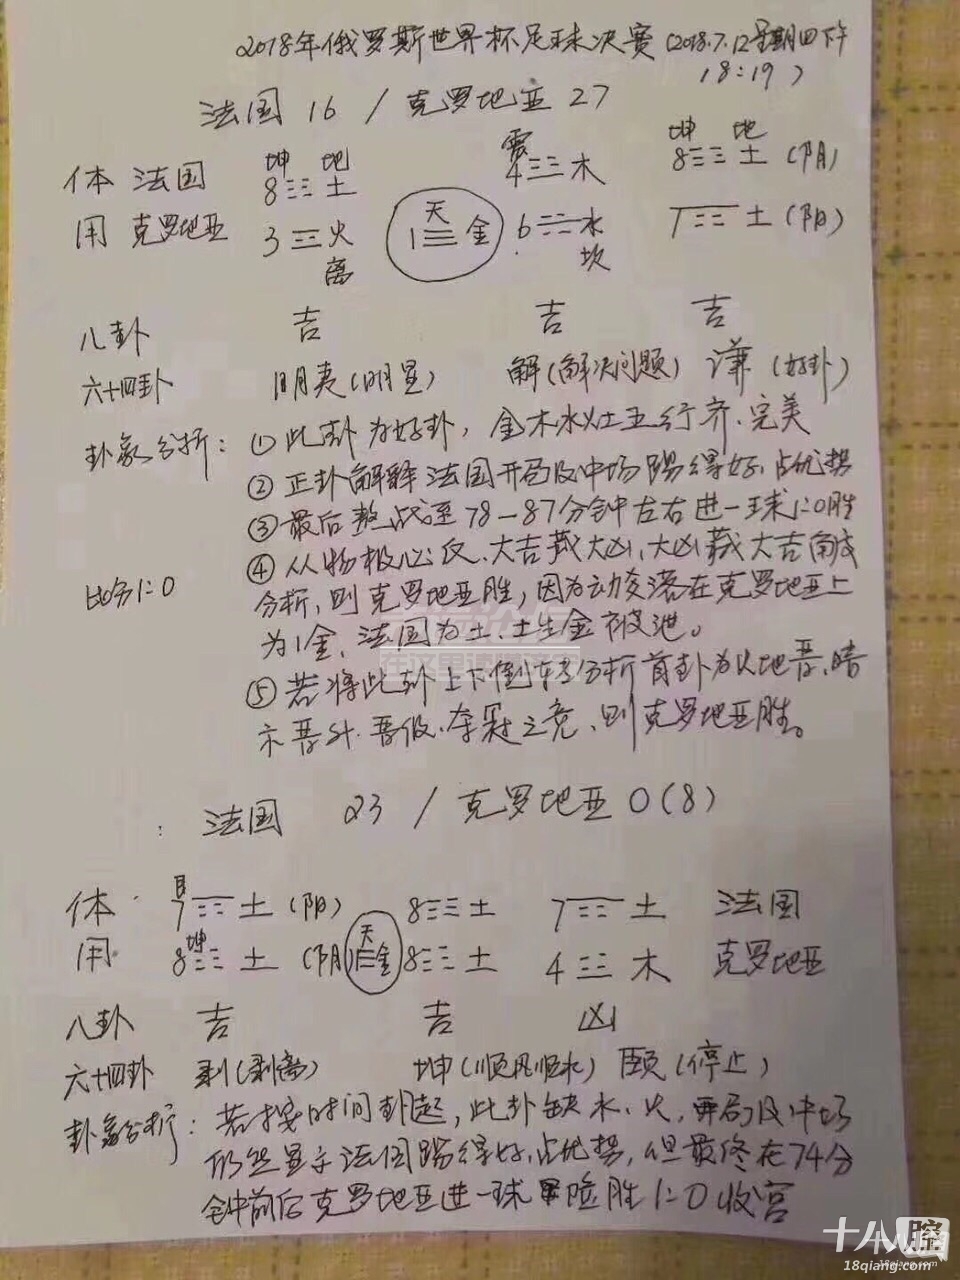 2018年俄罗斯世界杯足球决赛（2018.7.12星期四下午
18:19）
法国 16 / 克罗地亚 27
坤 地 震 坤 地
体 法国 8☷土 4☳木 8☷土（阴）
用 克罗地亚 3☲火 天 1☰金 6☵水 7☶土（阳）
离 坎
八卦 吉 吉 吉
六十四卦 明夷（明显） 解（解决问题） 谦（好卦）
卦象分析：①此卦为好卦，金木水火土五行齐、完美
②正卦解释法国开局及中场踢得好、占优势
③最后整战至78-87分钟左右进一球1:0胜
④从物极必反、大吉藏大凶，大凶藏大吉角度
比分1:0 分析，则克罗地亚胜，因为动爻落在克罗地亚上
为1金，法国为土、土生金被泄。
⑤若将此卦上下倒转分析首卦为火地晋，暗
示晋升、晋级、夺冠之竞、则克罗地亚胜。
法国 23 / 克罗地亚 0（8）
体 艮 7☶土（阳） 8☷土 7☶土 法国
用 8坤☷土（阴） 天 ☰金 8☷土 4☳木 克罗地亚
八卦 吉 吉 凶
六十四卦 剥（剥离） 坤（顺风顺水） 颐（停止）
卦象分析：若按时间卦起，此卦缺水、火，开局及中场
仍然显示法国踢得好、占优势，但最终在74分
钟前后克罗地亚进一球 险胜1:0收官
在这里读懂济南
十八腔
18qiang.com